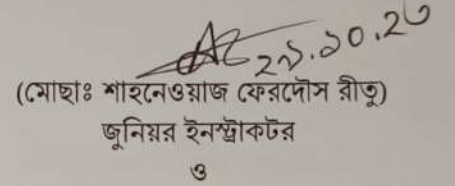 ২৯.১০.২৩
(মোছাঃ শাহনেওয়াজ ফেরদৌস রীতু)
জুনিয়র ইনস্ট্রাকটর
ও